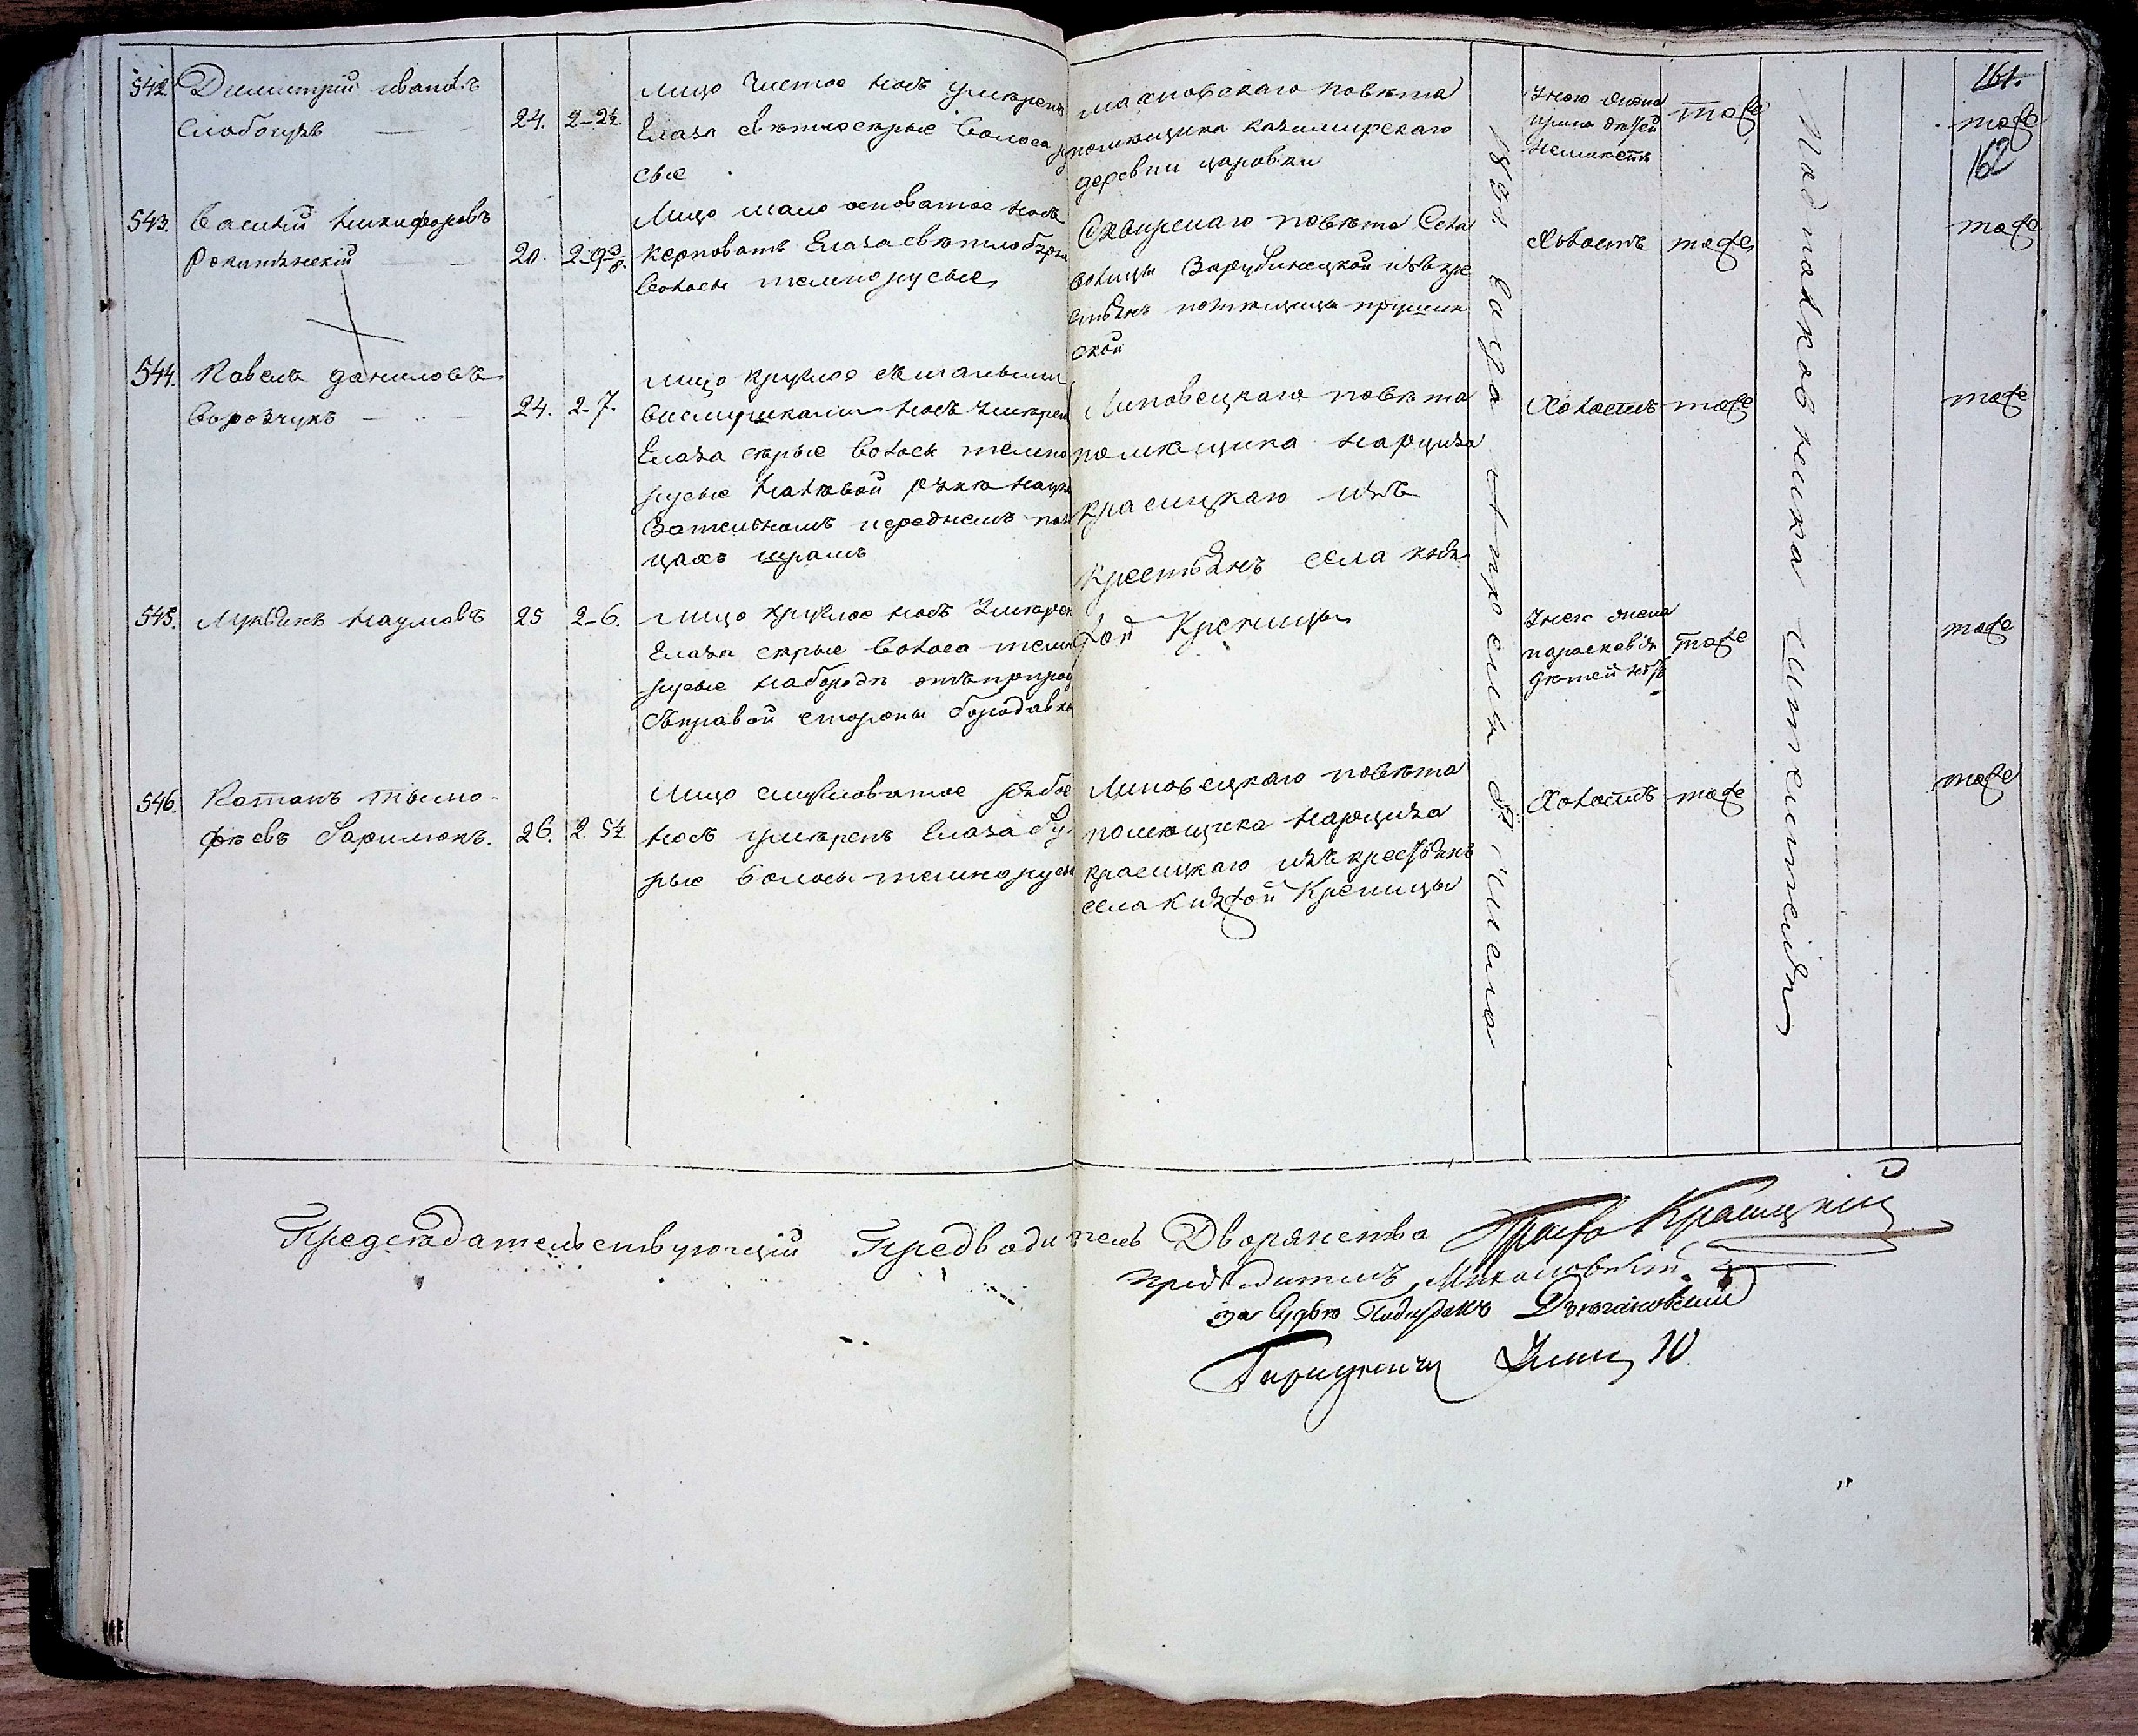 161.
162
542. Димитрий ивановъ
Слободзь
24. 2-2½.
лицо чистое носъ умѣренъ
Глаза свѣтлосѣрые волоса ру
сые
махновскаго повѣта
помѣщика казимирскаго
деревни царовки
У него жена
ирина дѣтей
неимѣетъ
тоже
тоже
543. Василий никифоровъ
Рокитянский
20. 2-9⅜.
Лицо мало осповатое носъ
керповатъ Глаза свѣтло бурые
волосы темнорусые
Сквирскаго повѣта Села
волицы Зарубинецкой изъ кре
стьянъ помѣщицы
ской
Холостъ
тоже
тоже
544. Павелъ даниловъ
Ворозчукъ
24. 2-7.
лицо круглое съ малыми
веснушками носъ умѣрен
Глаза сѣрые волосы темно
русые на лѣвой рукѣ на ука
зательномъ переднемъ паль
цахъ шрамъ
Липовецкаго повѣта
помѣщика нарциза
красицкаго изъ
крестьянъ села княж
жой Креницы
Холостъ
тоже
тоже
545. Лукьянъ наумовъ
25 2-6.
лицо круглое носъ умѣрен
Глаза сѣрые волоса темно
русые на бородѣ отъ природ
съ правой стороны бородавка
У него жена
параскевія
дѣтей нѣтъ
тоже
тоже
546. Потапъ тымо-
фѣевъ Гарилюкъ.
26. 2. 5½
Лицо смугловатое рябое
носъ умѣренъ Глаза бу
рые волосы темнорусые
Липовецкаго повѣта
помѣщика нарциза
красицкаго изъ крестьянъ
села княжой Креницы
Холостъ
тоже
тоже
1831 года апреля 8 числа
Подполковника
Председательствующій Предводитель Дворянства Графъ Красицкій
предводитель
за Судью Подсудокъ